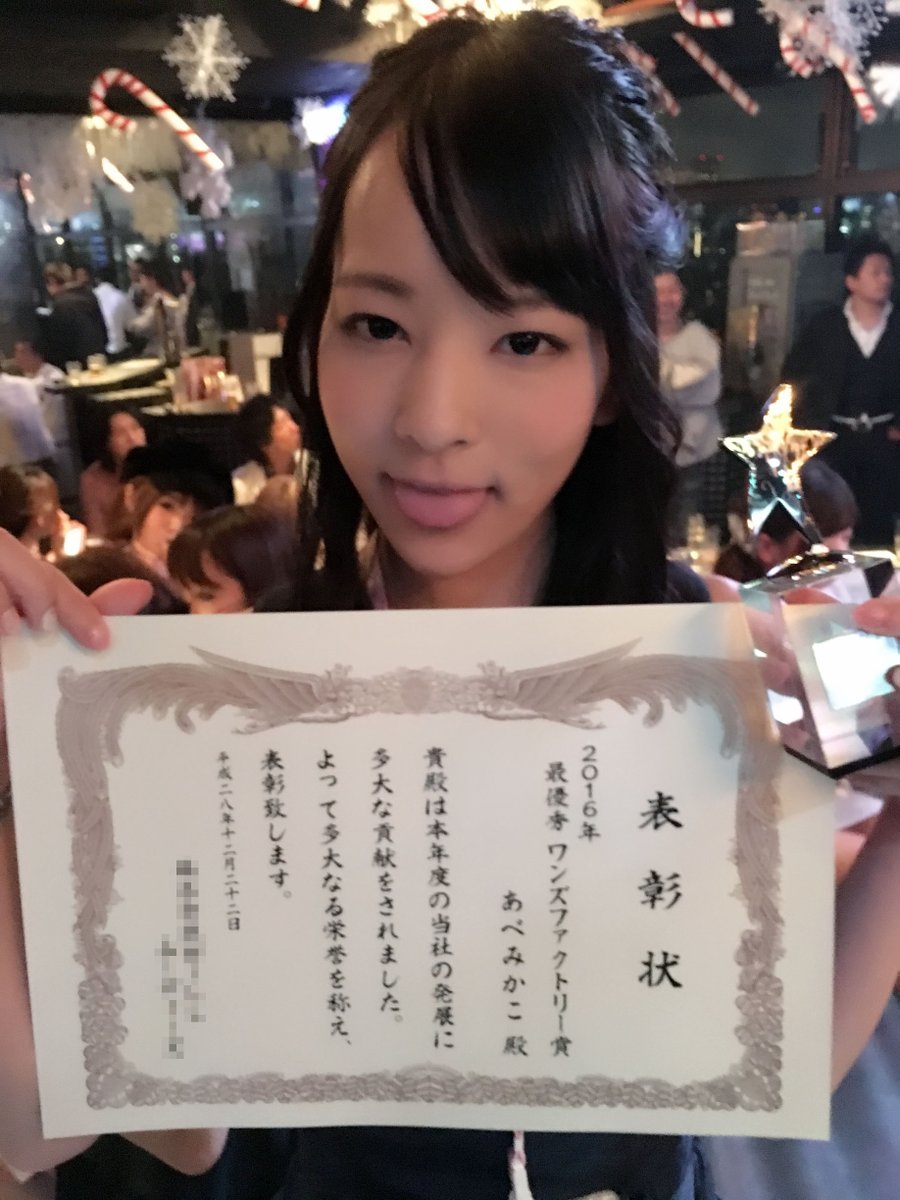 表彰状
2016年
最優秀 ワンズファクトリー賞
あべみかこ 殿
貴殿は本年度の当社の発展に
多大な貢献をされました。
よって多大なる栄誉を称え、
表彰致します。
平成二八年十二月二十二日